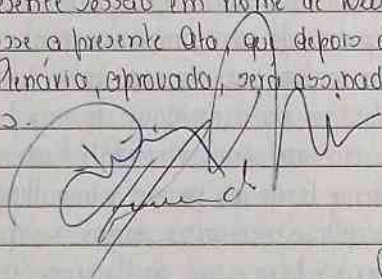 esente Sessão em nome de
sse a presente Ata, que depois
Plenária, aprovada, será assinad